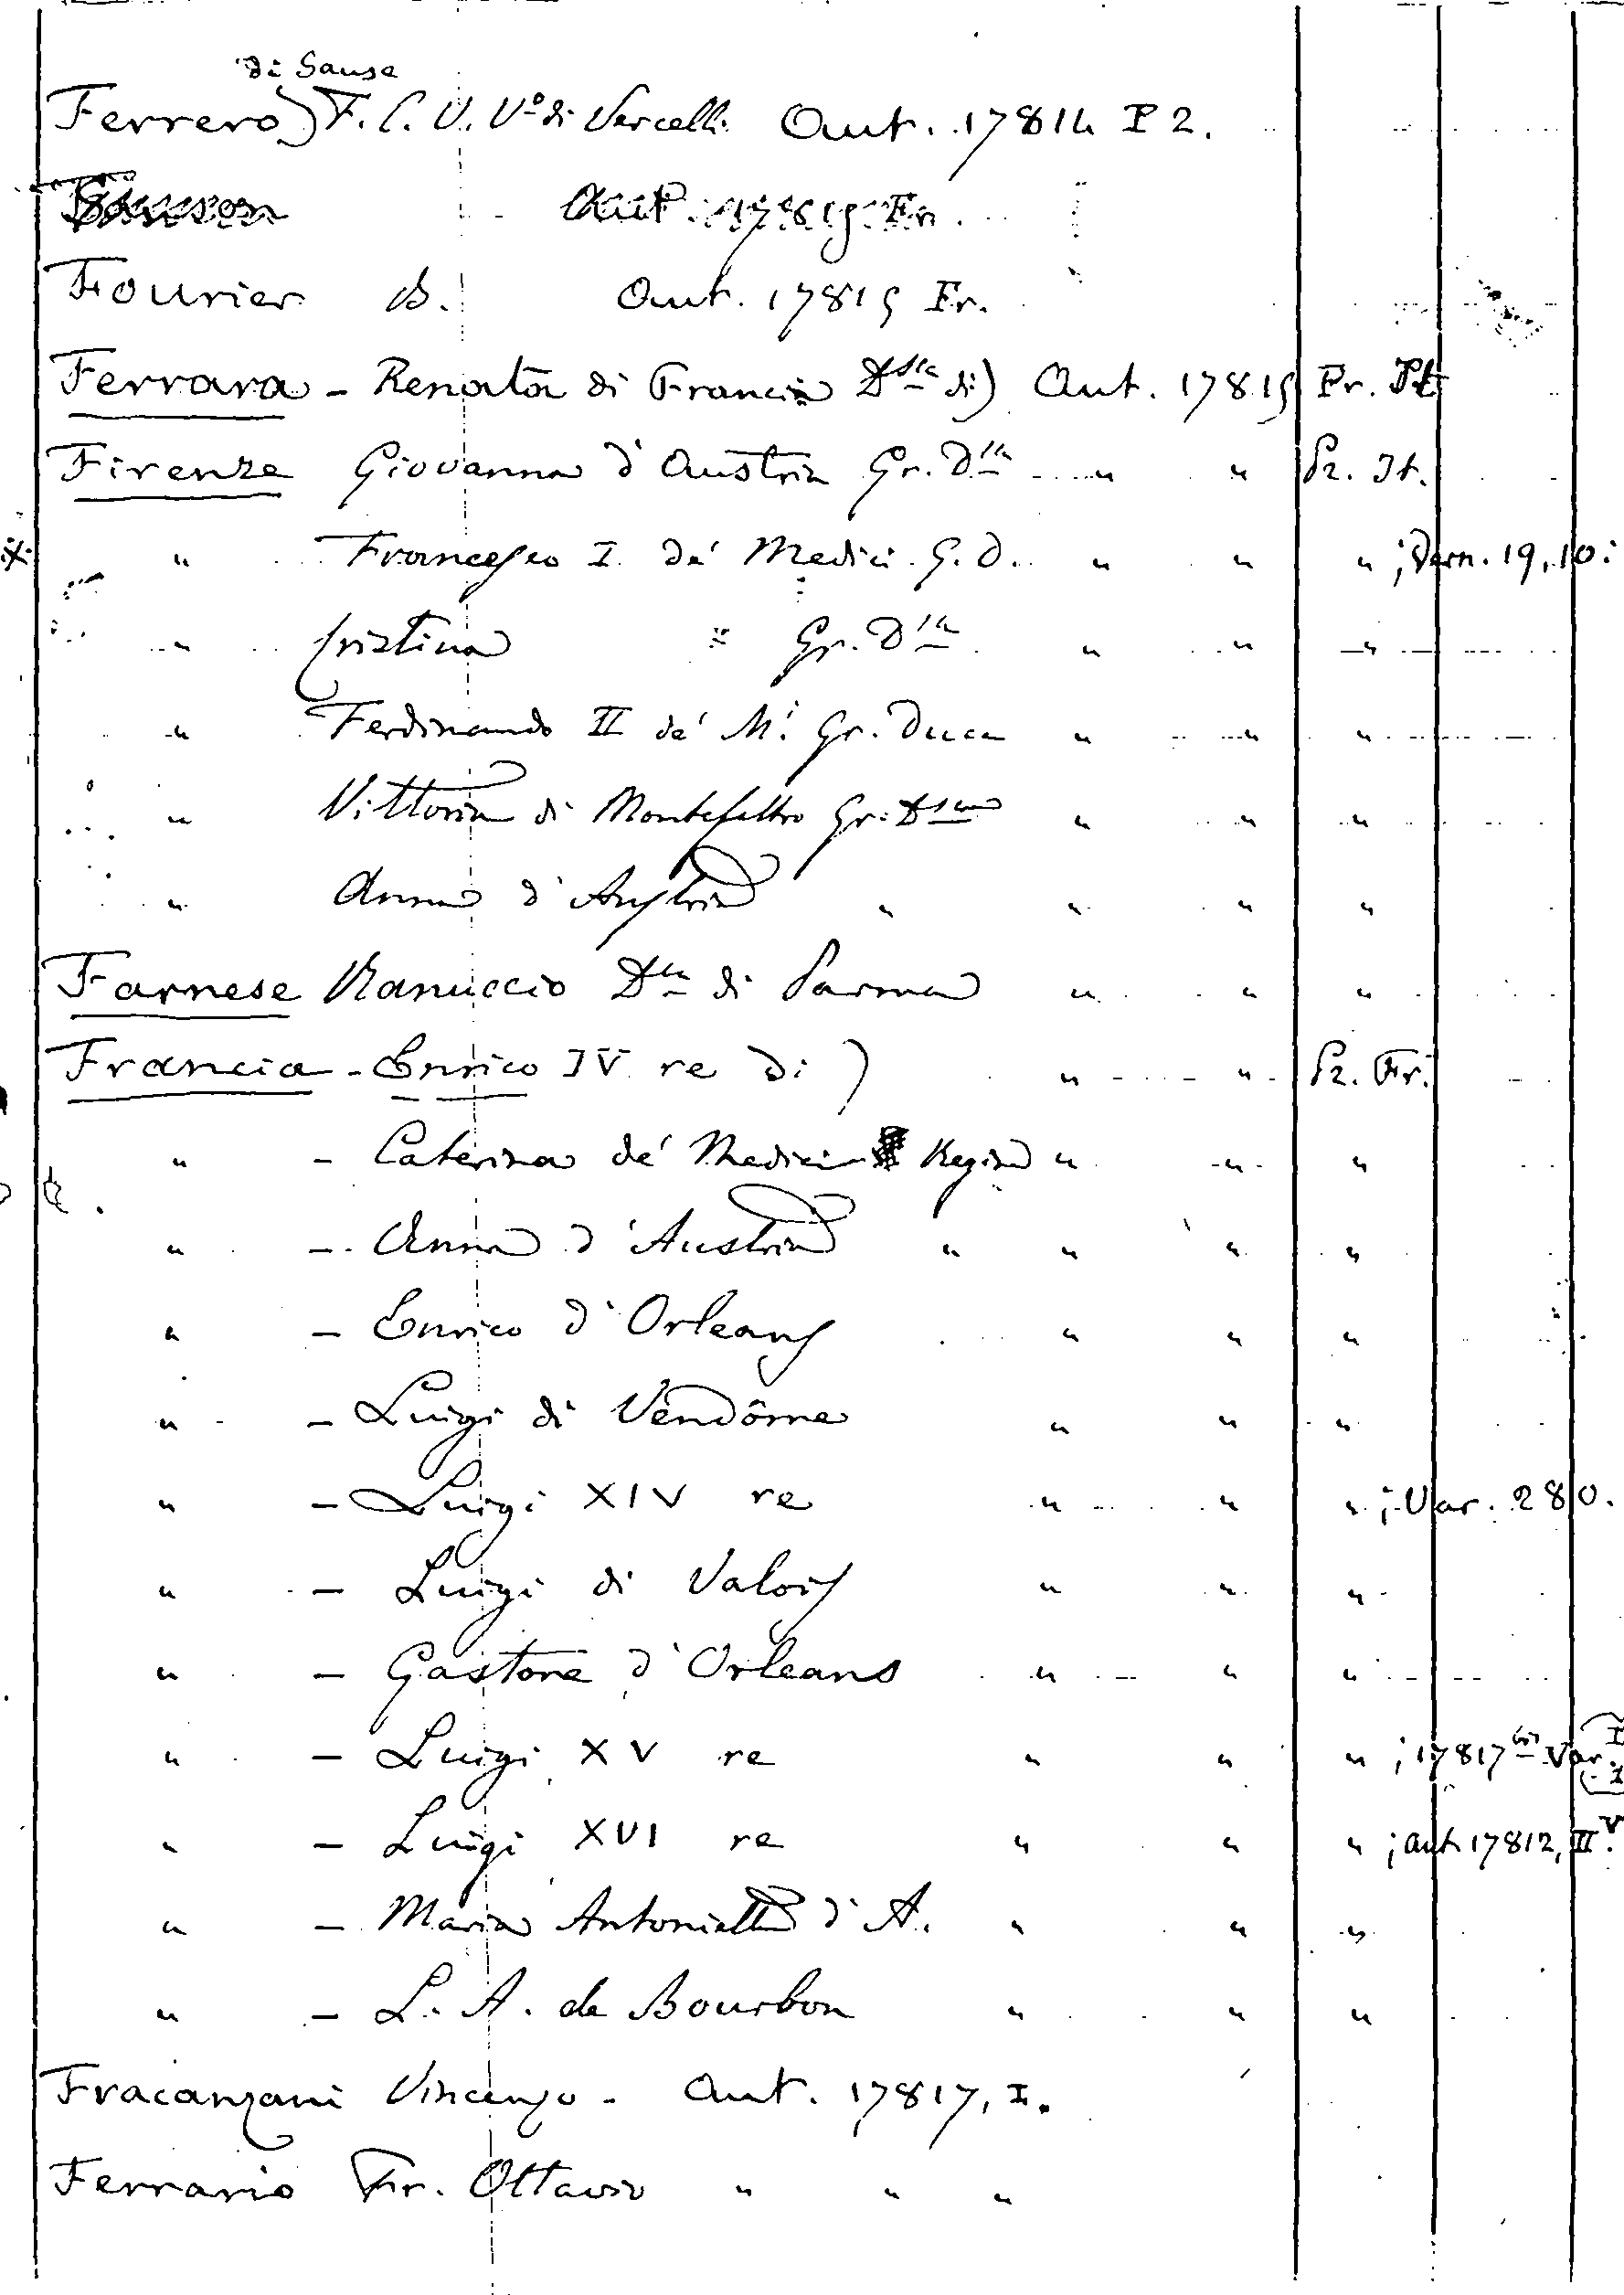 di Sause
Ferrero) F. C. V. Vº di Vercelli. Aut. 17814 P 2.
Aut. 17815 Fr.
Fourier B. Aut. 17815 Fr.
Ferrara - Renata di Francia Dssa di) Aut. 17815 Pr. It
Firenze Giovanna d'Austria Gr. Dssa " " Pr. It.
" Francesco I. de' Medici G. D. " " " ; Vern. 19, 10.
" Cristina " Gr. Dssa " " "
" Ferdinando II de' M.i Gr. Duca " " "
" Vittoria di Montefeltro Gr. Dssa " " "
" Anna d'Austria " " " "
Farnese Ranuccio Dca di Parma " " "
Francia - Enrico IV re di) " " Pr. Fr.
" - Caterina de' Medici Regina " " "
" - Anna d'Austria " " " "
" - Enrico d'Orleans " " "
" - Luigi di Vendôme " " "
" - Luigi XIV re " " " ; Var. 280.
" - Luigi di Valois " " "
" - Gastone d'Orleans " " "
" - Luigi XV re " " " ; 17817 bis Var.
" - Luigi XVI re " " " ; Aut. 17812, II. V
" - Maria Antonietta d'A. " " "
" - L. A. de Bourbon " " "
Fracanzani Vincenzo - Aut. 17817, I.
Ferrario Fr. Ottavio " " "